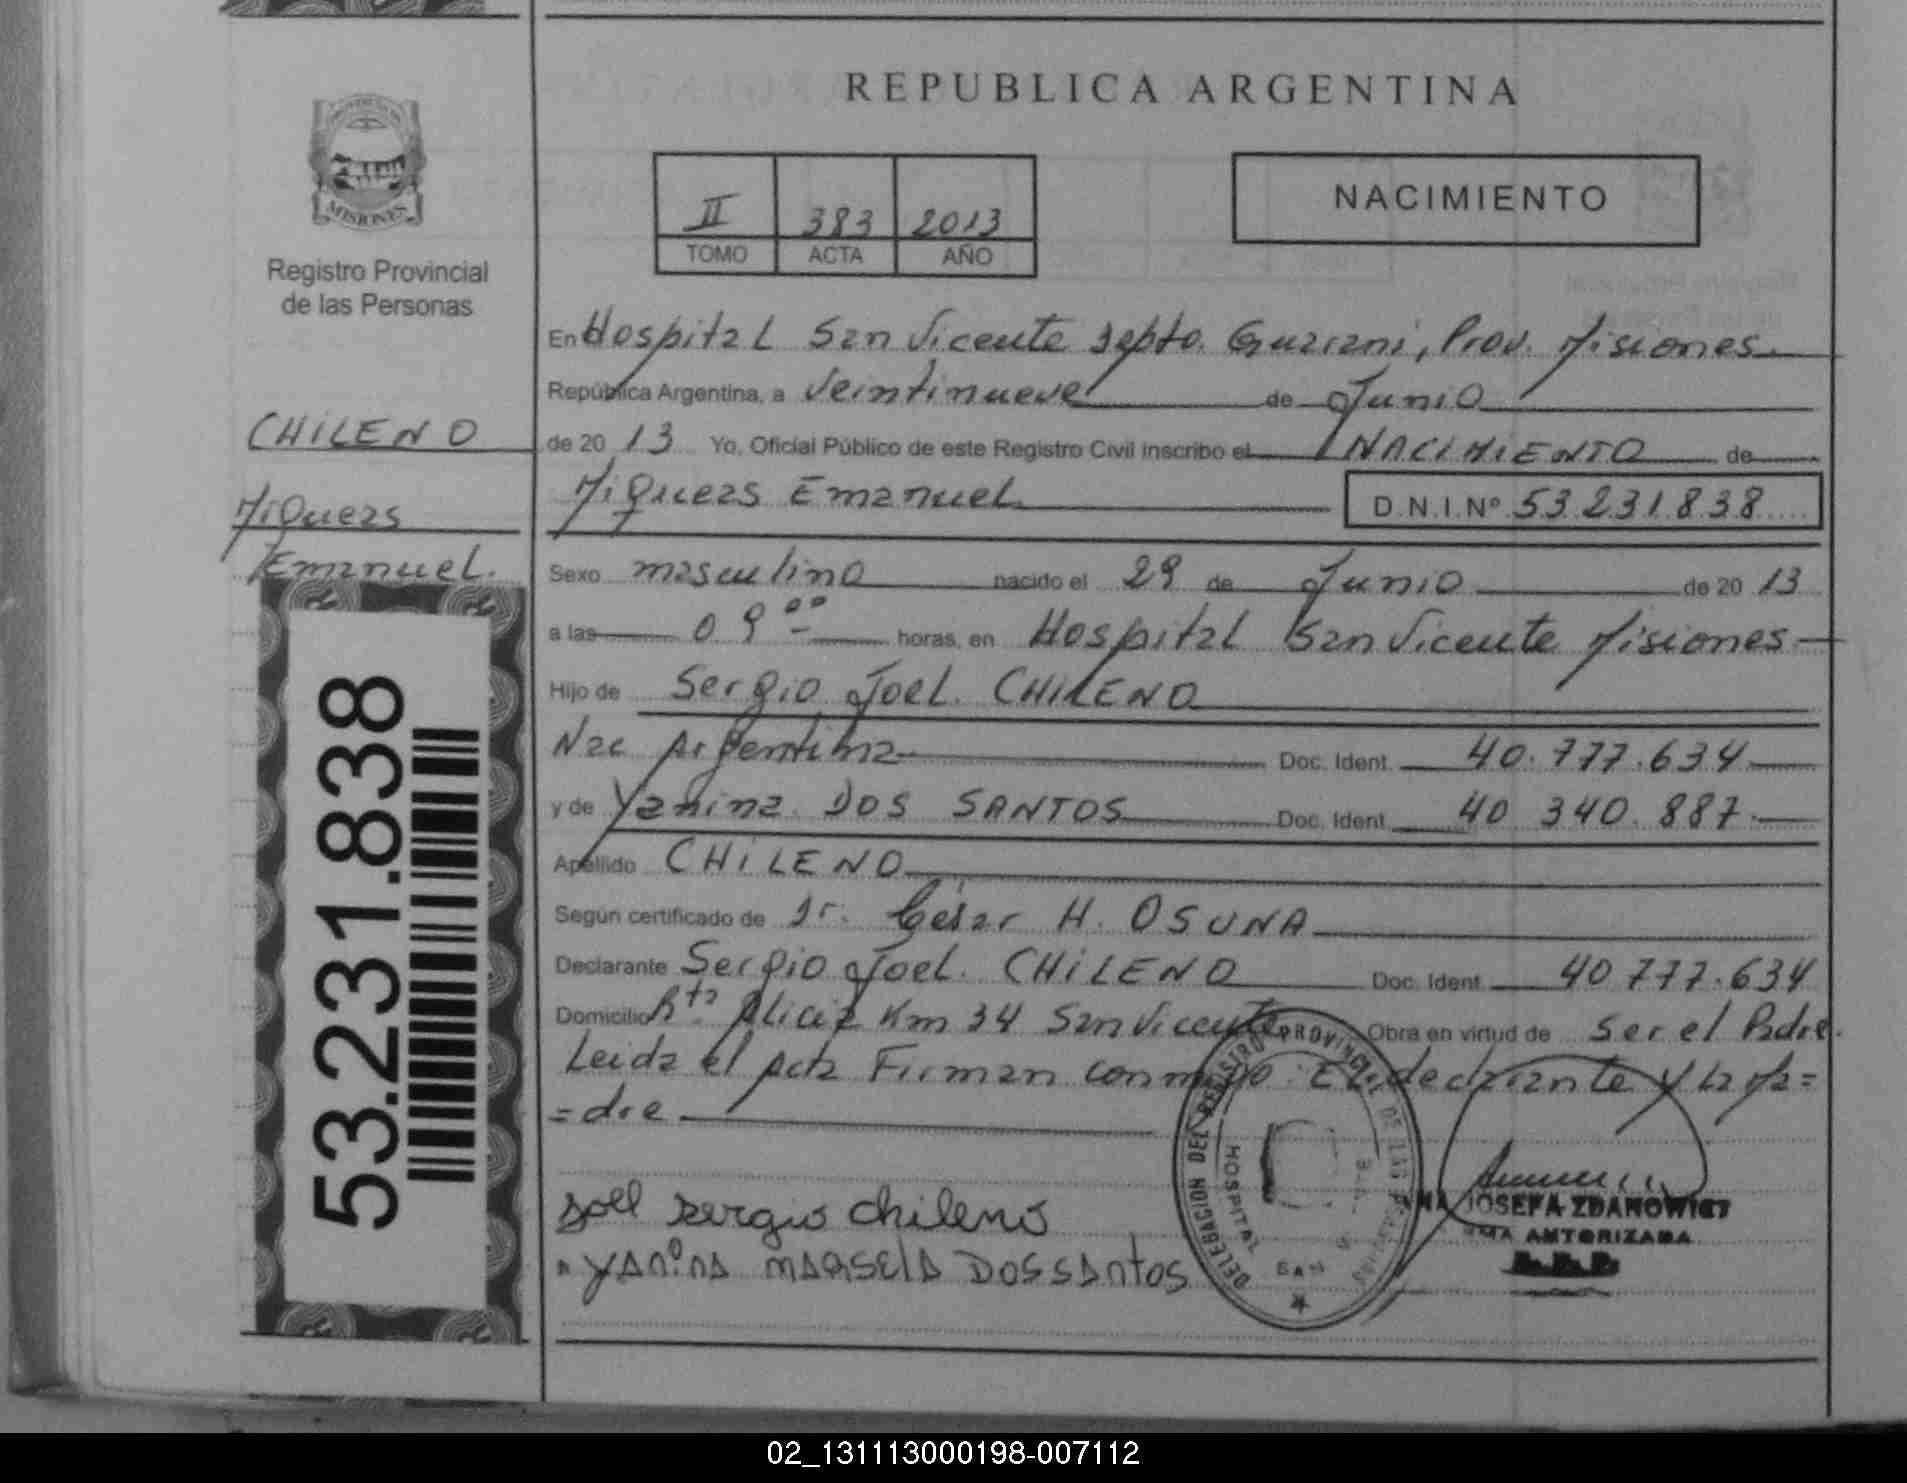 REPUBLICA ARGENTINA
MISIONES
Registro Provincial
de las Personas
II 383 2013
TOMO ACTA AÑO
NACIMIENTO
En Hospital San Vicente Dpto. Guarani, Prov. Misiones
República Argentina, a Veintinueve de Junio
CHILENO
de 20 13 Yo, Oficial Público de este Registro Civil inscribo el NACIMIENTO de
Miqueas Emanuel D.N.I.Nº 53.231.838
Miqueas
Emanuel.
Sexo masculino nacido el 29 de Junio de 20 13
a las 09 00 horas, en Hospital San Vicente Misiones
Hijo de Sergio Joel. CHILENO
Nac Argentina Doc. Ident. 40.777.634
y de Yanina DOS SANTOS Doc. Ident. 40 340.887.
Apellido CHILENO
Según certificado de Dr. César H. OSUNA
Declarante Sergio Joel. CHILENO Doc. Ident. 40 777.634
Domicilio Rta. Alicia Km 34 San Vicente Obra en virtud de Ser el Padre.
Leida el Acta Firman conmigo: El declarante y La Ma=
=dre
53.231.838
Joel sergio chileno
YAninA MARSElA DOSSANtos
DELEGACION DEL REGISTRO PROVINCIAL DE LAS
HOSPITAL SAN
JOSEFA ZDANOWICZ
FIRMA AUTORIZADA
R.P.P.
02_131113000198-007112